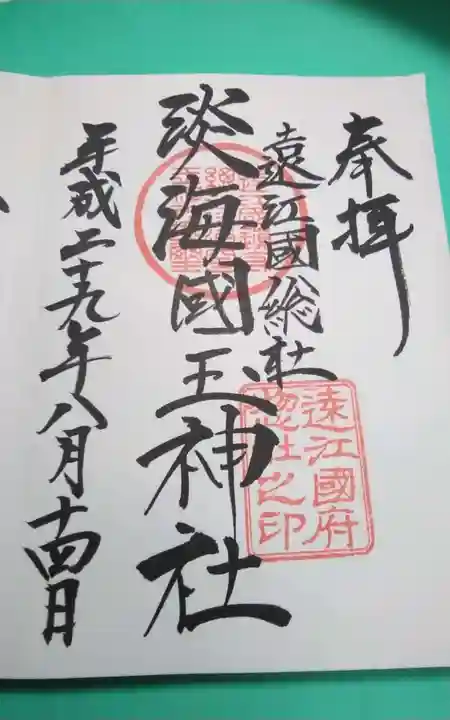 奉拝
遠江國総社
淡海國玉神社
平成二十九年八月十四日
遠江國府
惣社之印